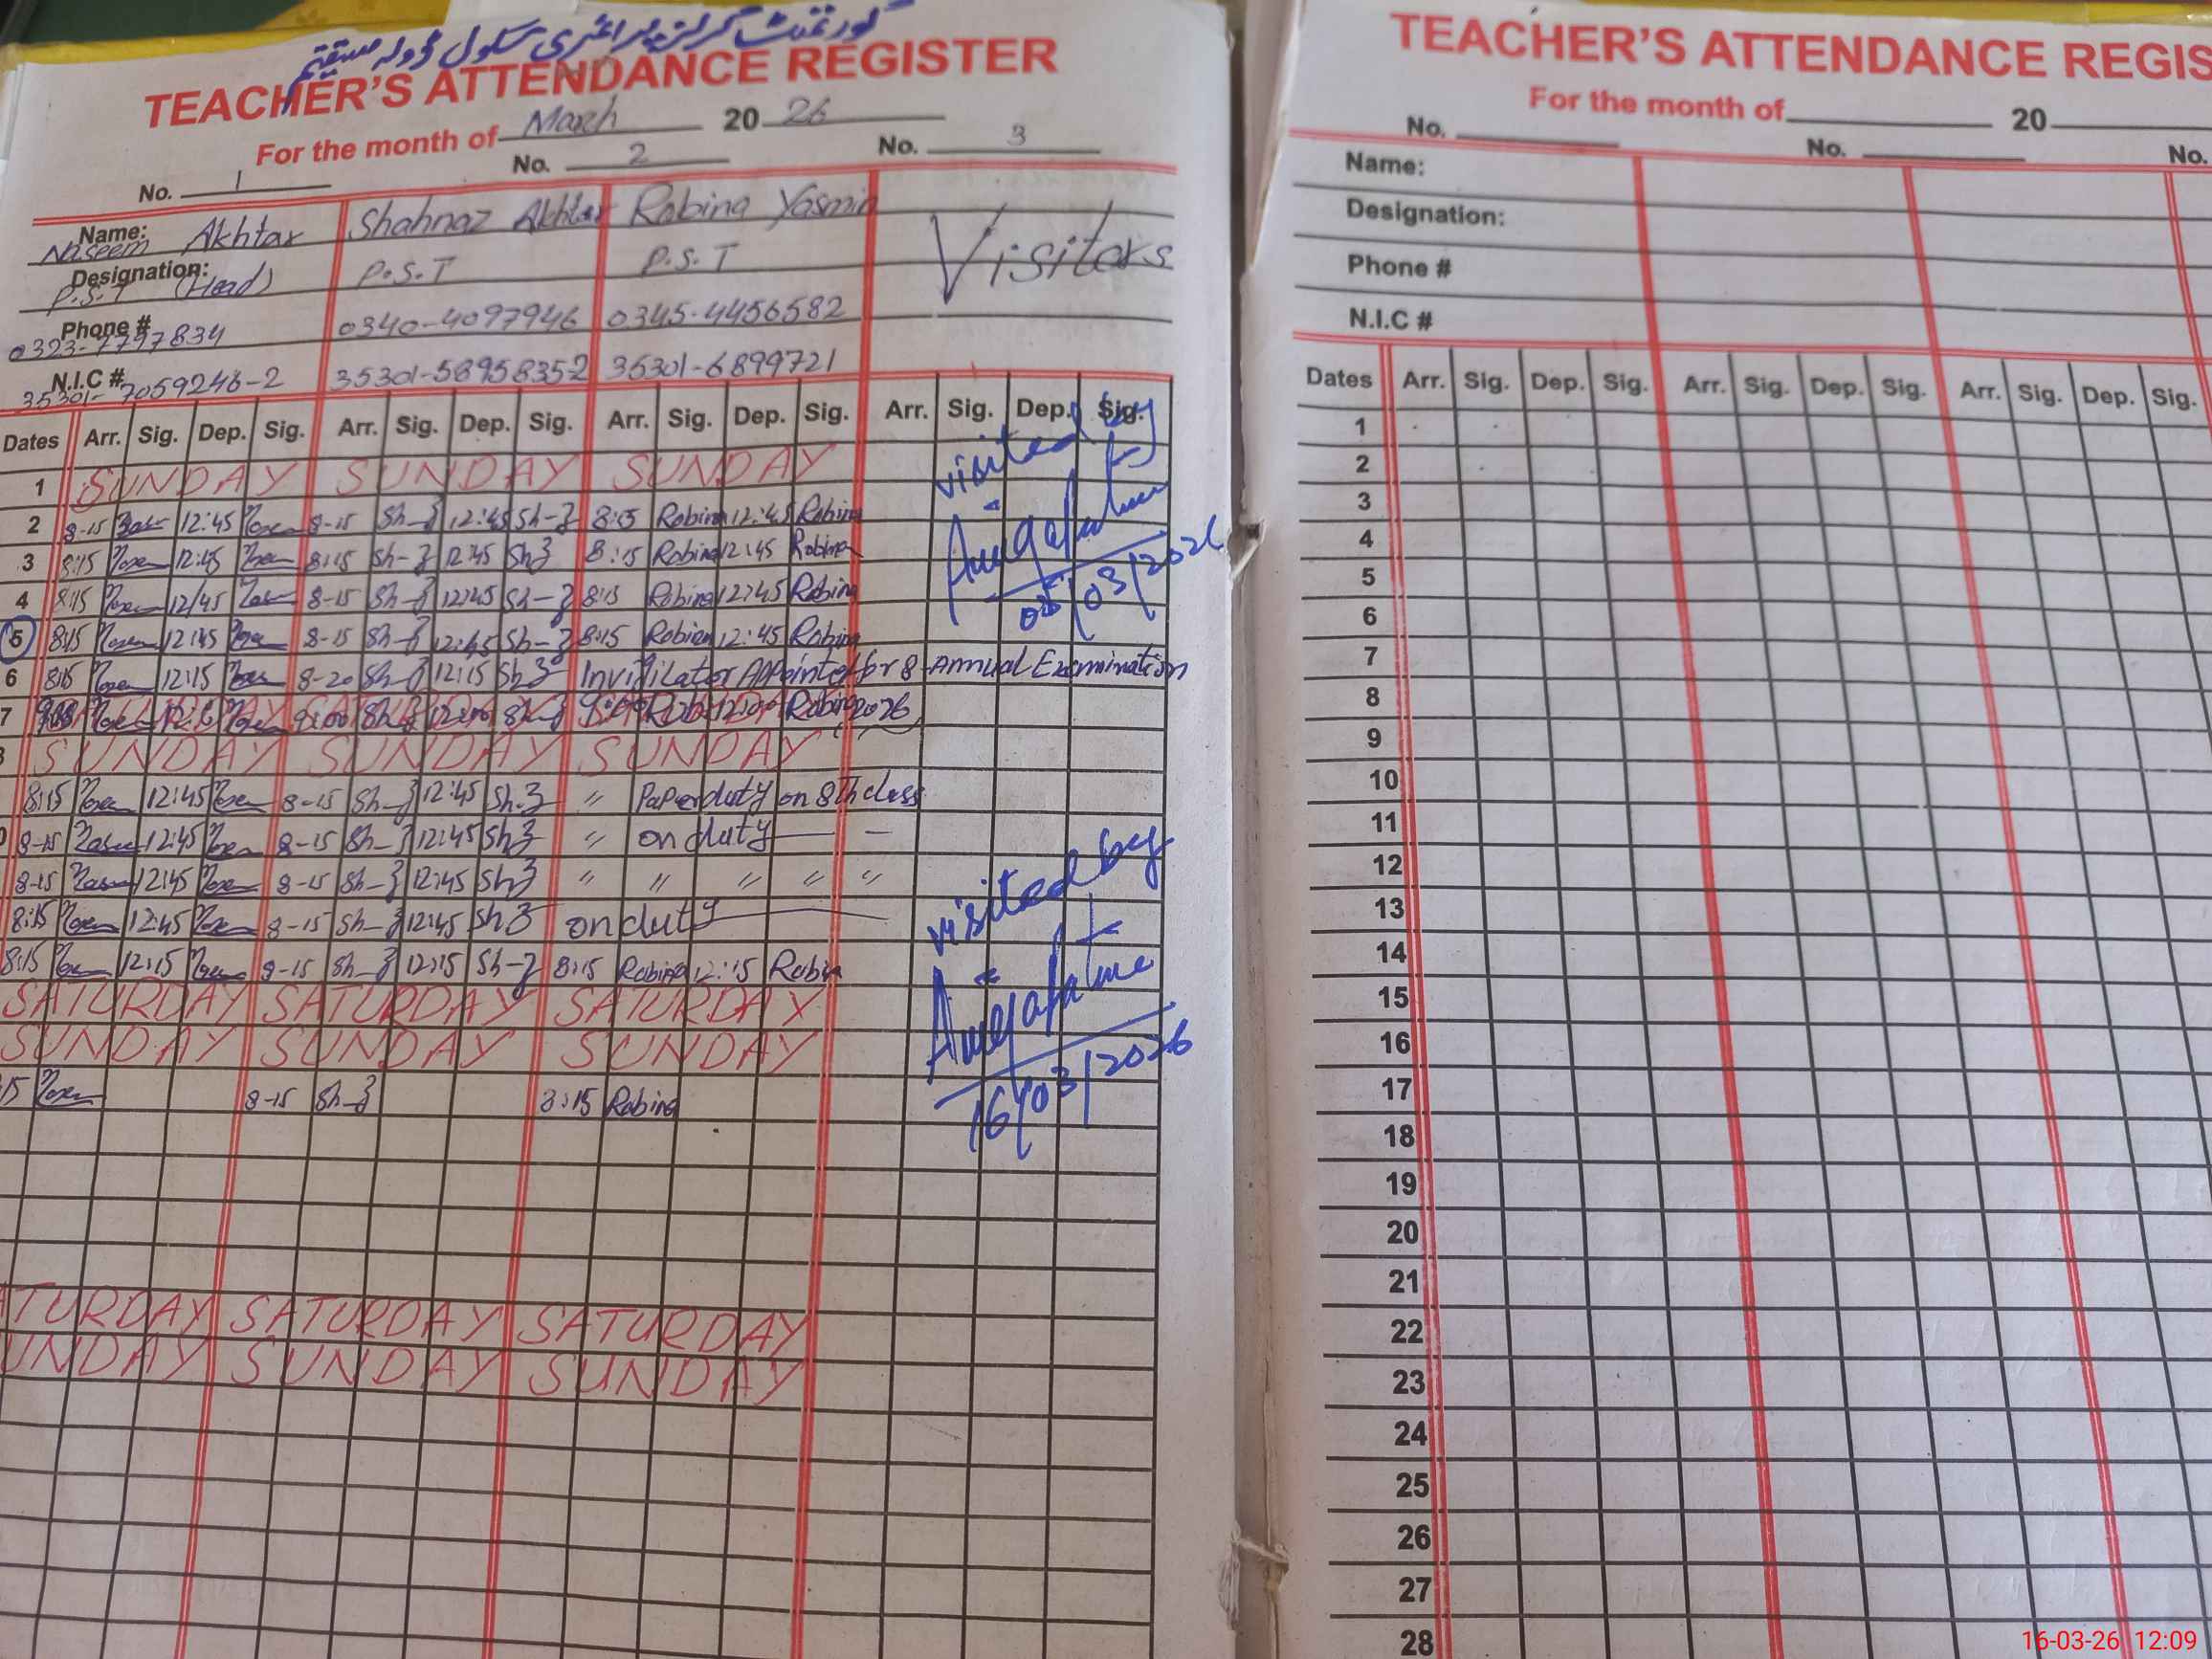 گورنمنٹ گرلز پرائمری سکول
TEACHER'S ATTENDANCE REGISTER
For the month of March 2026
No. 1 No. 2 No. 3
Name: Naseem Akhtar Shahnaz Akhtar Robina Yasmin Visitors
Designation: P.S.T (Head) P.S.T P.S.T
Phone # 0323-7797834 0340-4097946 0345-4456582
N.I.C # 35301-7059246-2 35301-5895835-2 35301-6899721
Dates Arr. Sig. Dep. Sig. Arr. Sig. Dep. Sig. Arr. Sig. Dep. Sig. Arr. Sig. Dep. Sig.
1 SUNDAY SUNDAY SUNDAY
2 8-15 12:45 8-15 Sh-z 12:45 Sh-z 8:15 Robina 12:45 Robina
3 8:15 12:45 8:15 Sh-z 12:45 Shz 8:15 Robina 12:45 Robina
4 8:15 12/45 8-15 Sh-z 12:45 Sh-z 8:15 Robina 12:45 Robina
5 8:15 12:45 8-15 Sh-z 12:45 Sh-z 8:15 Robina 12:45 Robina
6 8:15 12:15 8-20 Sh-z 12:15 Shz Invigilator Appointed for 8 Annual Examination
7 9:00 Sh-z 12:00 Sh-z 9:00 Rob 12:00 Robina 2026
SUNDAY SUNDAY SUNDAY
8:15 12:45 8-15 Sh-z 12:45 Sh-z " Paper duty on 8Th class
8-15 12:45 8-15 Sh-z 12:45 Shz " on duty
8-15 12:45 8-15 Sh-z 12:45 Shz " " " " "
8:15 12:45 8-15 Sh-z 12:45 Shz on duty
8:15 12:15 8-15 Sh-z 12:15 Sh-z 8:15 Robina 12:15 Robin
SATURDAY SATURDAY SATURDAY
SUNDAY SUNDAY SUNDAY
15 8-15 Sh-z 8:15 Robina
ATURDAY SATURDAY SATURDAY
UNDAY SUNDAY SUNDAY
visited by
05/03/2026
visited by
16/03/2026
TEACHER'S ATTENDANCE REGIS
For the month of 20
No. No. No.
Name:
Designation:
Phone #
N.I.C #
Dates Arr. Sig. Dep. Sig. Arr. Sig. Dep. Sig. Arr. Sig. Dep. Sig.
1
2
3
4
5
6
7
8
9
10
11
12
13
14
15
16
17
18
19
20
21
22
23
24
25
26
27
28
16-03-26 12:09